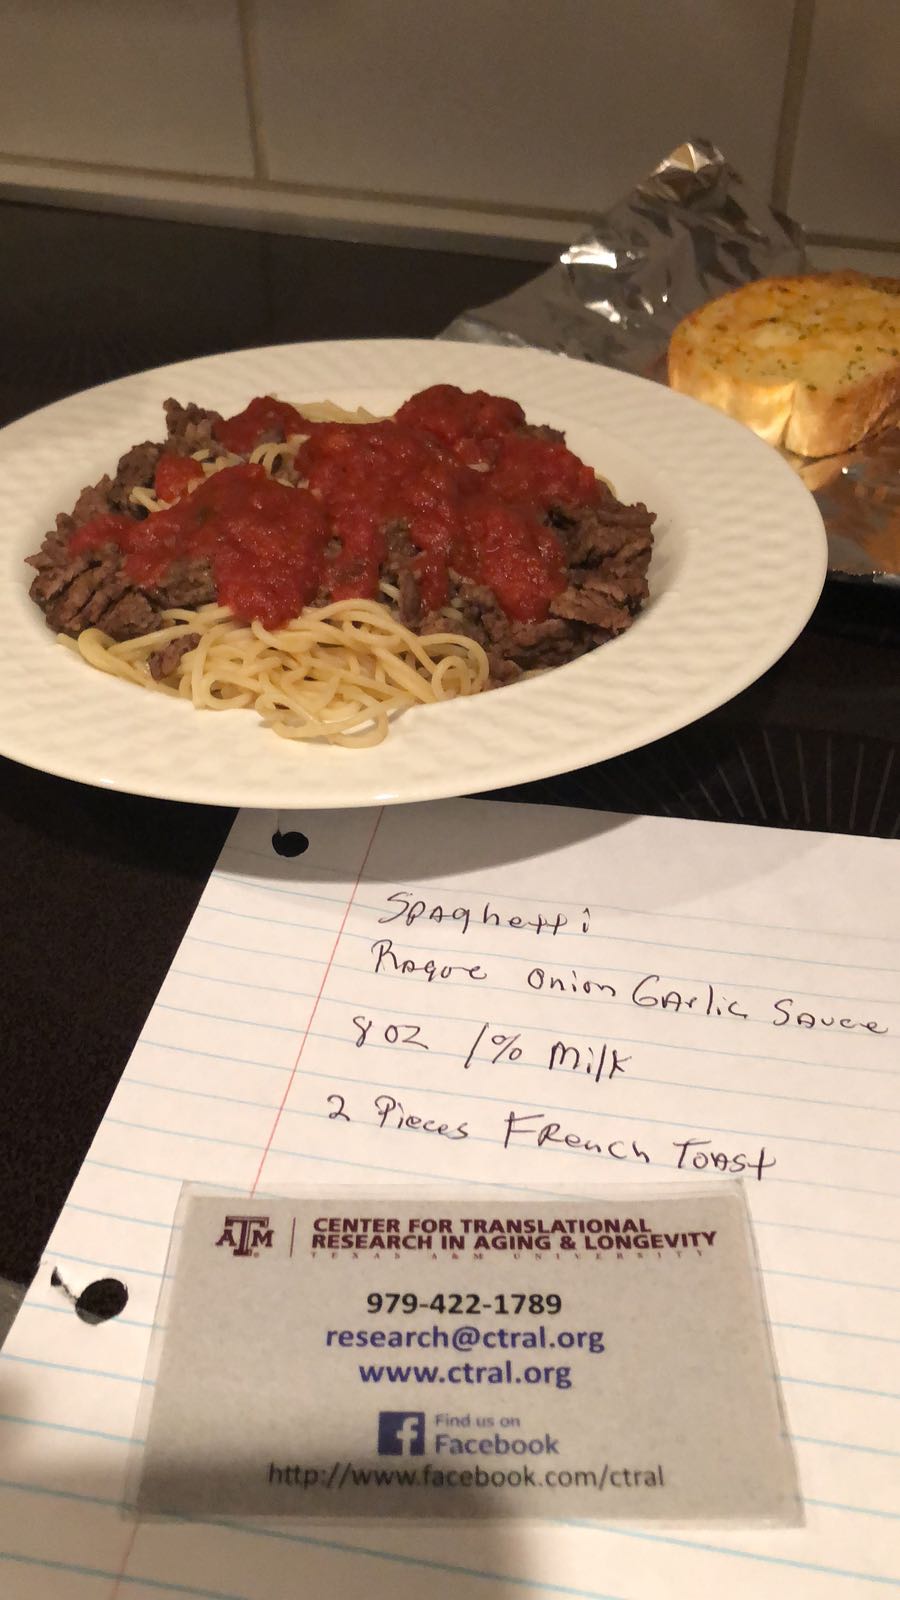 Spaghetti
Rague Onion Garlic Sauce
8 oz 1% Milk
2 Pieces French Toast
ATM
CENTER FOR TRANSLATIONAL
RESEARCH IN AGING & LONGEVITY
TEXAS A&M UNIVERSITY
979-422-1789
research@ctral.org
www.ctral.org
f Find us on
Facebook
http://www.facebook.com/ctral